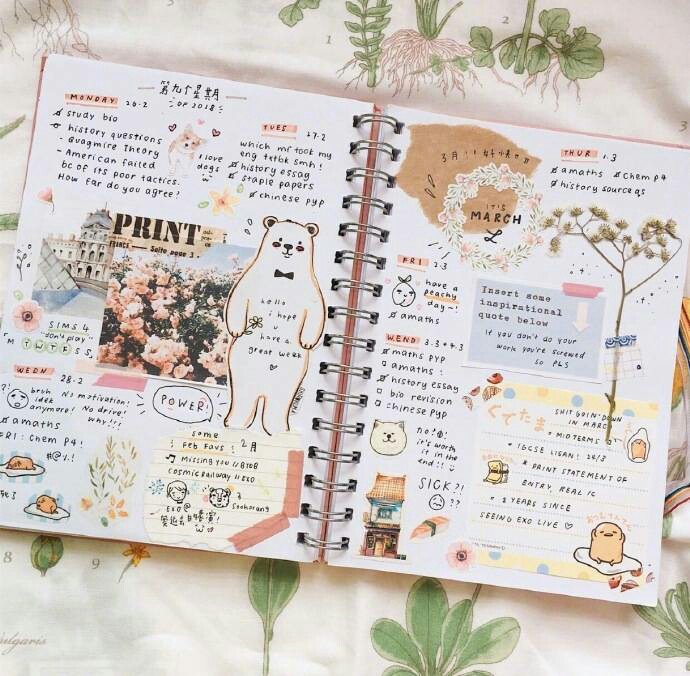 第九个星期
OF 2018
MONDAY 26.2
study bio
history questions
Quagmire Theory
- American failed
bc of its poor tactics.
How far do you agree?
I love
dogs
TUES 27.2
which mf took my
eng txtbk smh!
history essay
staple papers
chinese pyp
PRINT
Suite page 3
SIMS 4
don't play
M T W T F S S
hello
i hope
u
have a
great week
WEDN 28.2
?! bruh
idek
anymore!
No motivation!
No drive!
why!!!
amaths
FRI: Chem P4!
#@%!
POWER!
some
Feb Favs 2月
Missing you // BTOB
Cosmic Railway // EXO
EXO@
Seohorang
3月!!好快!!
IT'S
MARCH
THUR 1.3
amaths
Chem P4
history source qs
FRI 2.3
have a
peachy
day~!
amaths
Insert some
inspirational
quote below
if you don't do your
work you're screwed
so PLS
WEND 3.3+4.3
maths pyp
amaths!
history essay
bio revision
chinese pyp
加油!
it's worth
it in
the end!!
SICK?!
??
ぐでたま
SHIT GOIN' DOWN
IN MARCH
* MIDTERMS
* IGCSE LISAN! 26/3
* PRINT STATEMENT OF
ENTRY, REAL IC
* 2 YEARS SINCE
SEEING EXO LIVE ♡